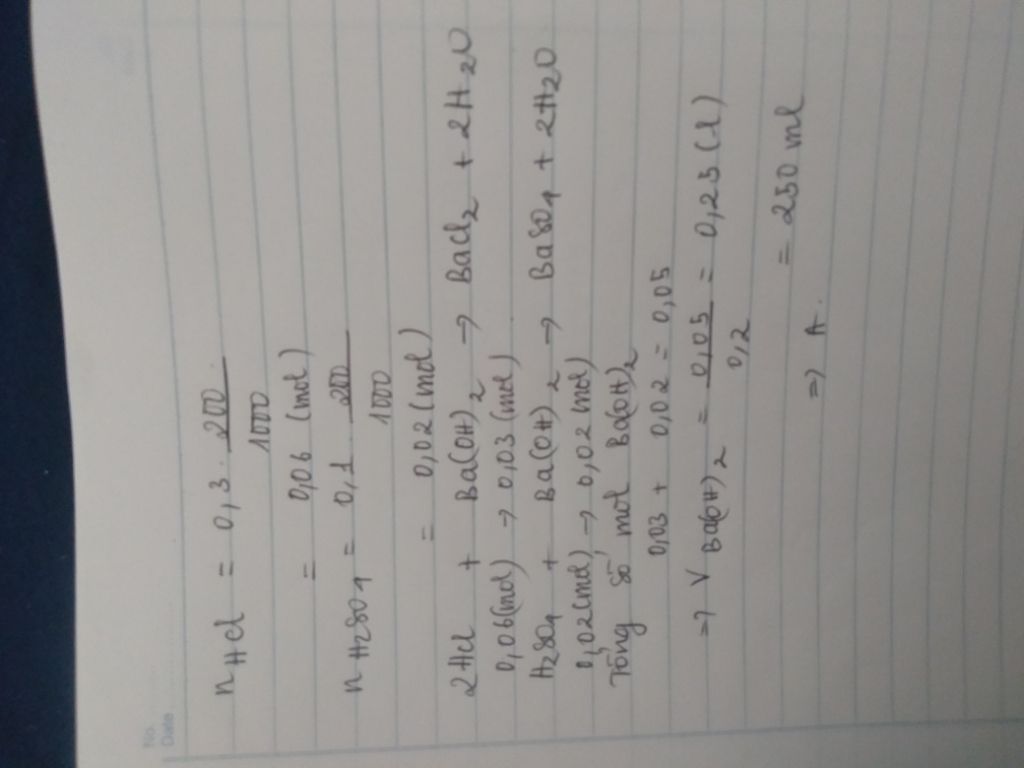 No.
Date
nHCl = 0,3 . 200/1000
= 0,06 (mol)
nH2SO4 = 0,1 . 200/1000
= 0,02 (mol)
2HCl + Ba(OH)2 → BaCl2 + 2H2O
0,06(mol) → 0,03 (mol)
H2SO4 + Ba(OH)2 → BaSO4 + 2H2O
0,02(mol) → 0,02 (mol)
Tổng số mol Ba(OH)2
0,03 + 0,02 = 0,05
=> V Ba(OH)2 = 0,05/0,2 = 0,25 (l)
= 250 ml
=> A.